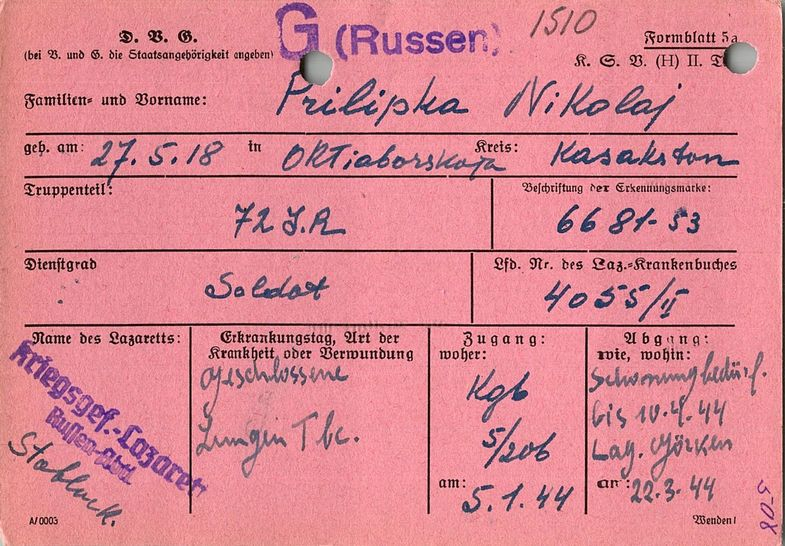 D. V. G.
(bei V. und G. die Staatsangehörigkeit angeben)
G (Russen)
1510
Formblatt 5a
K. S. V. (H) II. T
Familien- und Vorname: Prilipka Nikolaj
geb. am: 27.5.18 in Oktiaborskaja Kreis: Kasakston
Truppenteil: 72 J.R
Beschriftung der Erkennungsmarke:
6681-53
Dienstgrad
Soldat
Lfd. Nr. des Laz.-Krankenbuches
4055/II
Name des Lazaretts:
Kriegsgef.-Lazarett
Russen-Abtl.
Stablack.
Erkrankungstag, Art der
Krankheit oder Verwundung
geschlossene
Lungen Tbc.
Zugang:
woher:
Kgb
5/206
am: 5.1.44
Abgang:
wie, wohin:
Schonungsbedürf.
bis 10.4.44
Lag. Görken
am: 22.3.44
A/0003
Wenden!
508